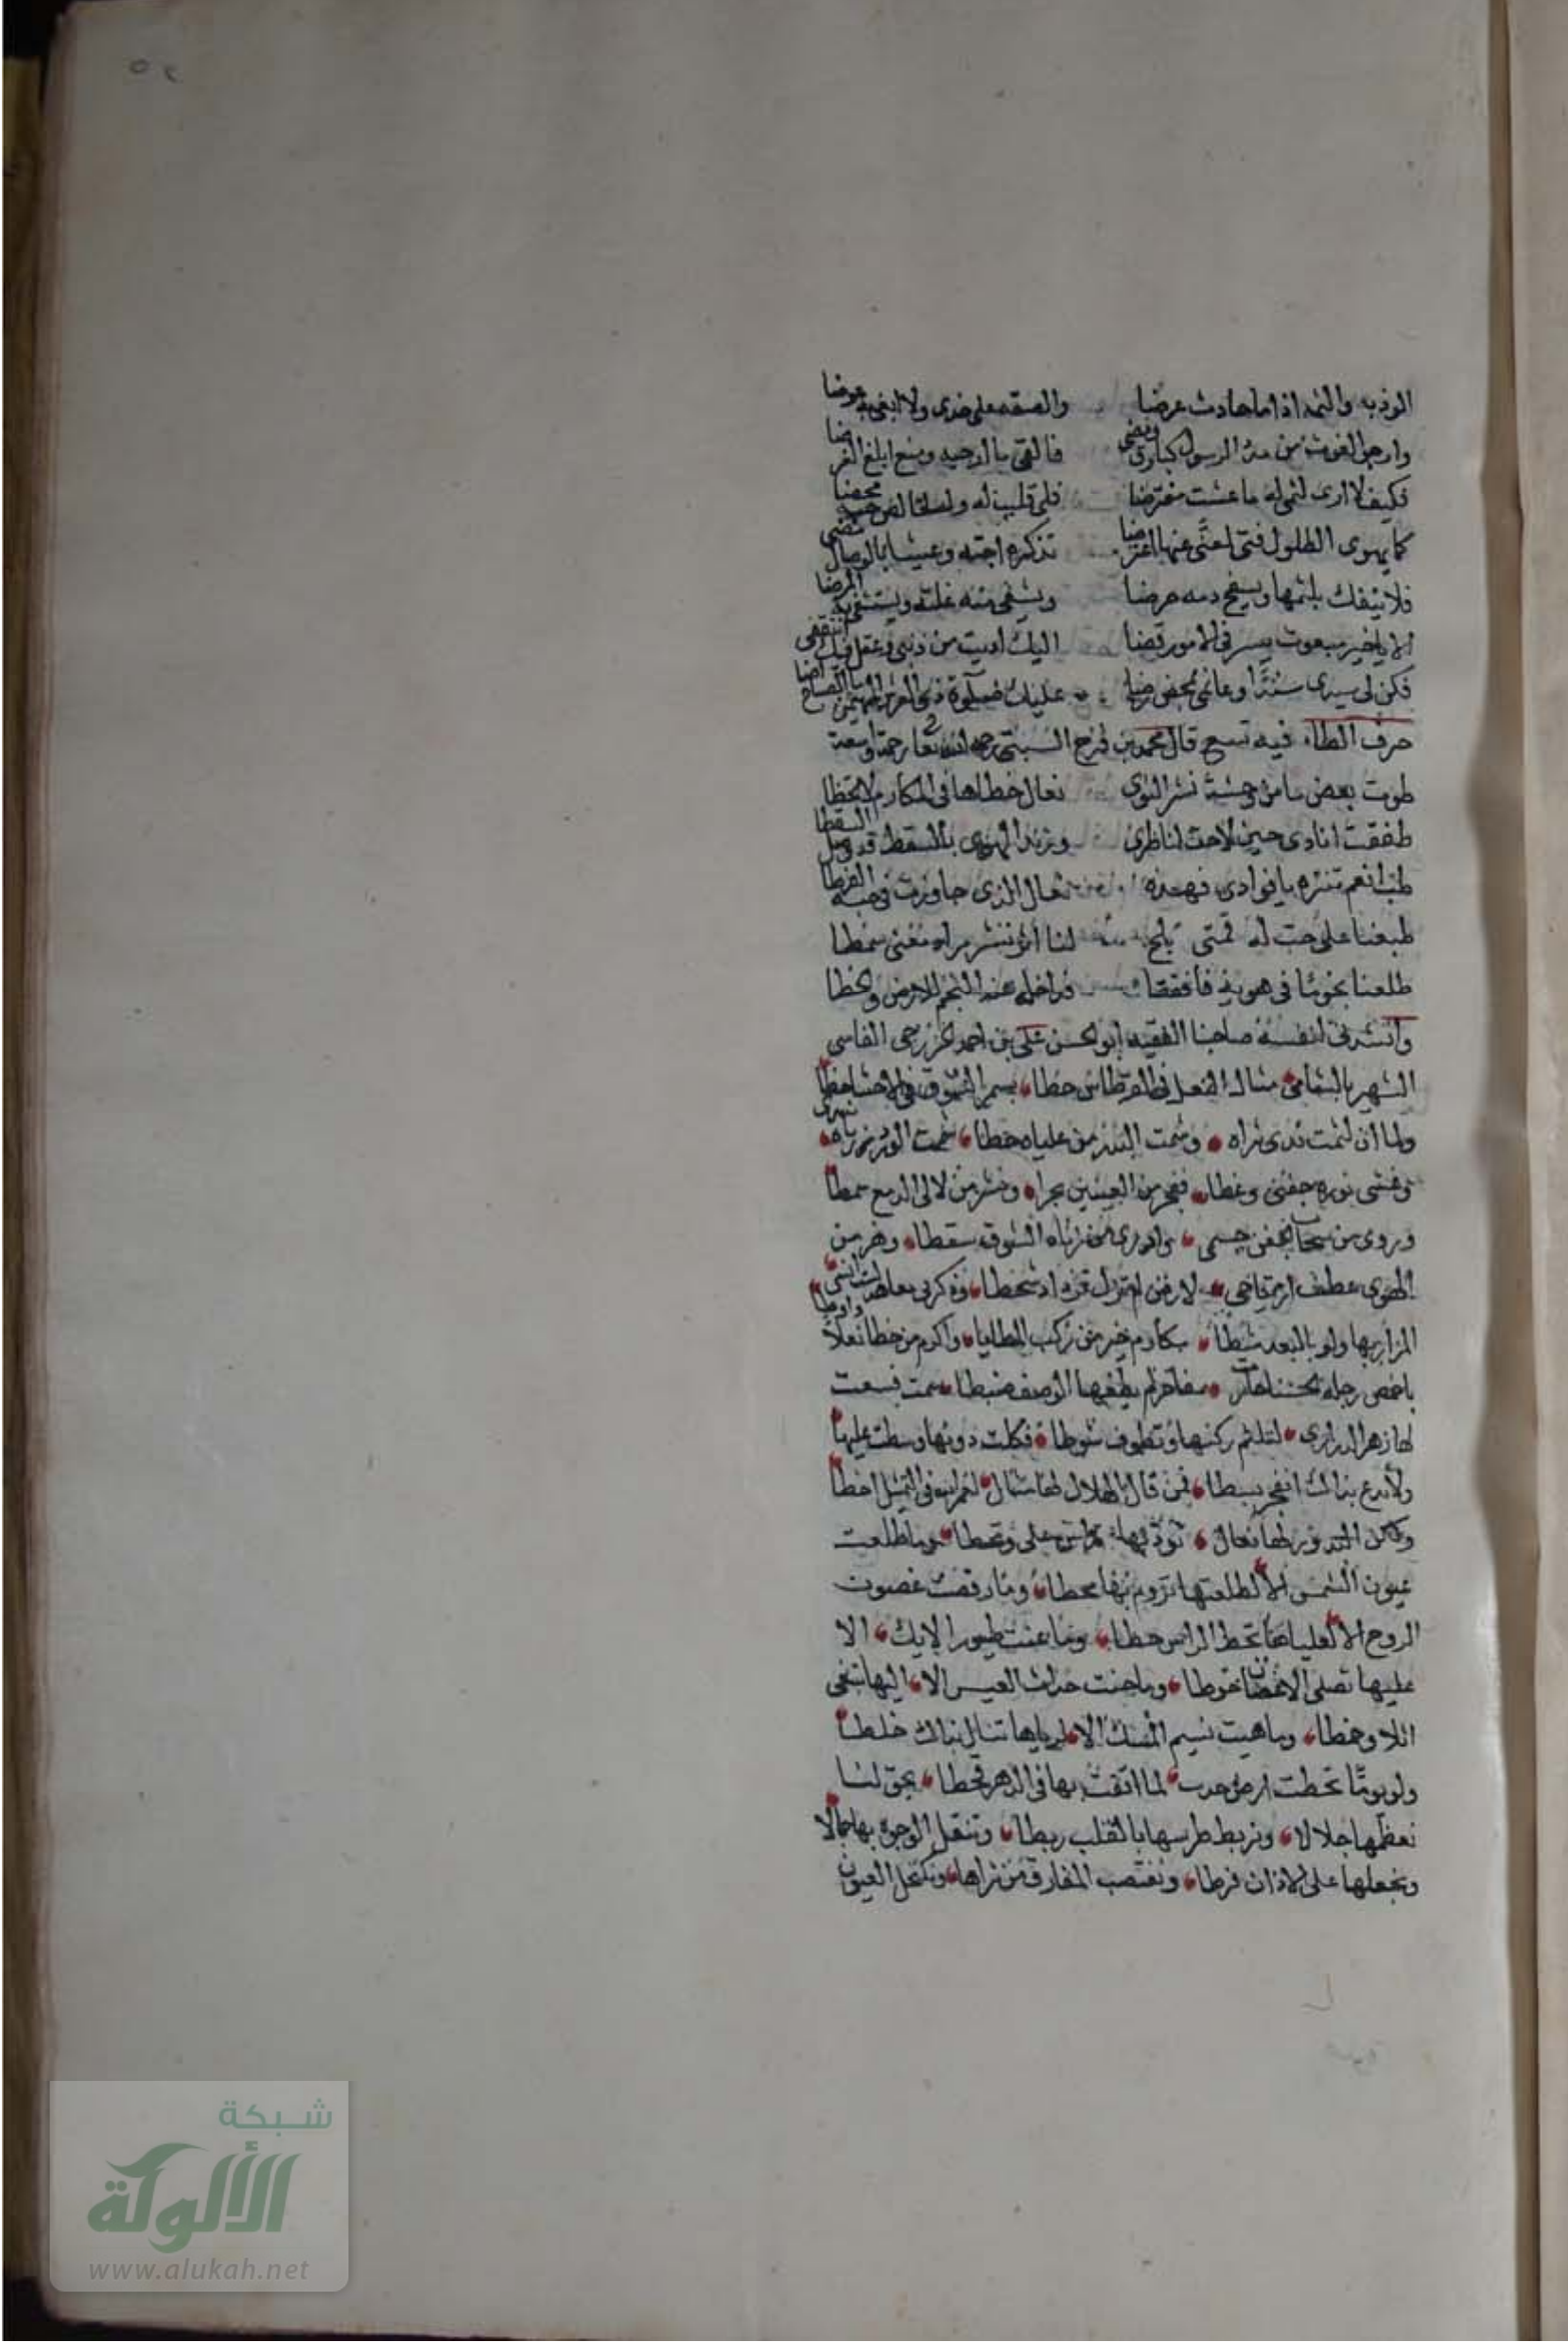 ٥٢
الوذ به والثمه اذا ما حادث عرضا والصقه على خدى ولا ابغى به عوضا
وارجو الغوث من مدد الرسول كبارق ومضى فالقى ما ارجيه ومنع ابلغ الغرضا
فكيف لا ارى لثمى له ما عشت مفترضا فلى قلب له ولع بخالص حبه محضا
كما يهوى الطلول فتى لمعنى عنها اعترضا تذكره احبته وعيشا بالوصال مضى
فلا ينفك يلثمها ويسفح دمه حرضا ويشفى منه غلته ويستشفى به المرضا
الا يا خير مبعوث بيسر فى الامور قضا اليك اويت من ذنبى وعقل فيك
فكن لى سيدى سندا وعاملنى بمحض رضا عليك صلوة ذى العرش المهيمن ما الصباح اضا
حرف الطاء فيه تسع قال محمد بن فرج السبتى رحمه الله تعا رحمة واسعة
طوت بعض ما من وحشة نشر النوى نعال خطاها فى المكارم لا تخطا
طفقت انادى حين لاحت لناظرى وزند الهوى بالسقط قد وصل السقطا
طب انعم تنزه يا فوادى فهذه نعال الذى جاوزت فى حبه الفرطا
طبعنا على حب له فمتى يلح لنا اثر ننشر مراه نغنى سمطا
طلعنا نجوما فى هوى فافقنا مداخله عند النجم للارض
وانشدنى لنفسه صاحبنا الفقيه ابو الحسن على بن احمد الخزرجى الفاسى
الشهير بالشامى مثال النعل فى القرطاس خطا بسمر الشوق فى الاحشا خطا
ولما ان لثمت ندى ثراه وشمت البدر من علياه حطا شممت الورد من رياه
وغشى نوره جفنى وغطا ففجر من العينين بحرا ونثر من لالى الدمع سمطا
وروى من سحاب الجفن جسمى واورى من زناد الشوق سقطا وهز من
الهوى عطف ارتياحى لارض لم تزل تزداد شحطا وذكرنى معاهد
المزار بها ولو بالبعد شطا بكارم خير من ركب المطايا واكرم من خطا نعلا
باخمص رجله الحسنا حازت مفاخر لم يطقها الوصف ضبطا سمت فسعت
لها زهر الدرارى لتلثم ركنها وتطوف شوطا فكلت دونها وسطت عليها
ولا بدع بذاك الفجر يسطا فمن قال الهلال لها مثال لعمرك فى التمثل اخطا
وكل البدور لها نعال تود بها على وتحطا وما طلعت
عيون الشمس الا لطلعتها تروم بها محطا وما رقصت غصون
الروح الا لعلياها تحط الراس حطا وما غنت طيور الايك الا
عليها تصلى الاغصان خوطا وما حنت حداة العيس الا اليها تبغى
اثلا وخمطا وما هبت نسيم المسك الا لرياها تنال بذاك خلطا
ولو يوما تخطت ارض جدب لما اتقت بها فى الدهر قحطا بحق لنا
نعظمها جلالا ونربط طرسها بالقلب ربطا وتنقل الوجوه بها جمالا
ونجعلها على الاذان قرطا ونغتصب المفارق من ثراها ونكتحل العيون
شبكة
الألوكة
www.alukah.net